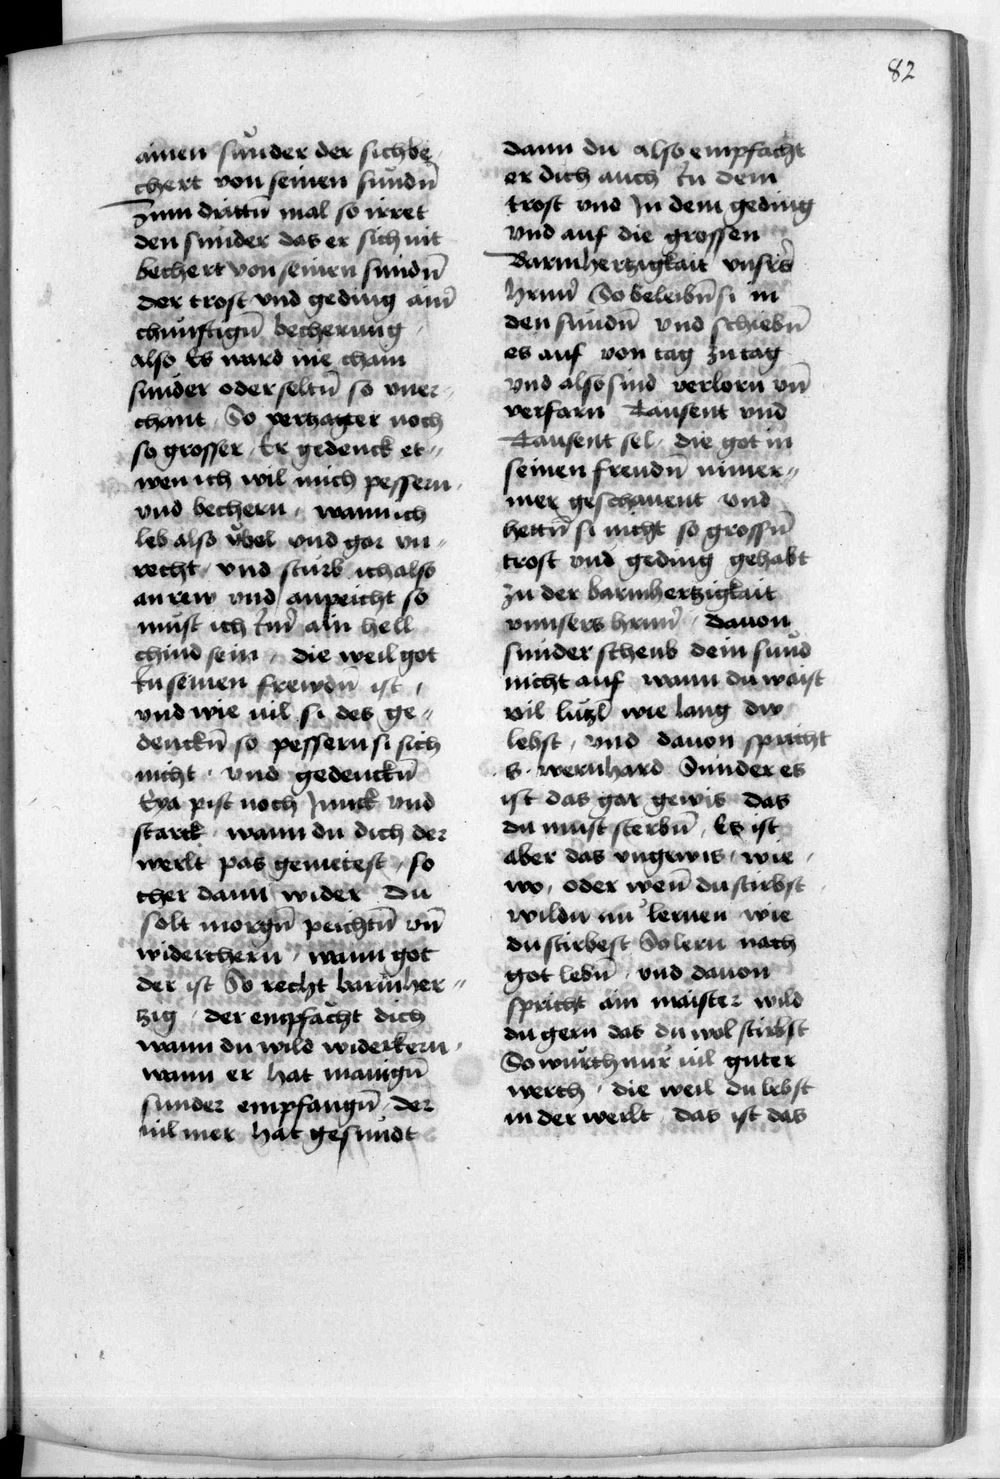 82
ainen sůnder der sich be
chert von seinen sundn̄
Zum drittn̄ mal so irret
den sunder das er sich nit
bechert von seinen sundn̄
der trost vnd geding ain̄
chunftign̄ becherung
also Es ward nie chain
sunder oder seltn̄ so vner-
chant So verzagter noch
so grosser Er gedenck et-
wen ich wil mich pessern
vnd bechern wann ich
leb also ůbel vnd gar vn-
recht vnd sturb ich also
an rew vnd an peicht so
můst ich ain hell
chind sein die weil got
In seinen frewdn̄ ist
vnd wie uil si des ge-
denckn̄ so pessern si sich
nicht vnd gedenckn̄
Eya pist noch Junck vnd
starck wann du dich der
werlt pas gemetest so
cher dann wider Du
solt morgn̄ peichtn̄ vn̄
widerchern wann got
der ist So recht barmher-
tzig der empfacht dich
wann du wild widerkern
wann er hat manign̄
sunder empfangn̄ der
uil mer hat gesundt
dann du also empfacht
er dich auch In dem
trost vnd In dem geding
vnd auf die grossen
Barmhertzigkait vnsrs̄
hrnn̄ So beleibn̄ si in
den sundn̄ vnd schiebn̄
es auf von tag zu tag
vnd also sind verlorn vn̄
verfarn Tausent vnd
Tausent sel die got in
seinen freudn̄ nimer-
mer geschauent vnd
hettn̄ si nicht so grossn̄
trost vnd geding gehabt
zu der barmhertzigkait
vnnsers hrnn̄ dauon
sunder scheub dein sůnd
nicht auf wann du waist
vil lutzl wie lang dw
lebst vnd dauon spricht
s. wernhard Sunder es
ist das gar gewis das
du must sterbn̄ Es ist
aber das vngewis wie
wo oder wen̄ du stirbst
wildu nů lernen wie
du stirbest So lern nach
got lebn̄ vnd dauon
spricht ain maister wild
du gern das du wol stirbst
So wurch nur uil guter
werch die weil du lebst
in der werlt das ist das